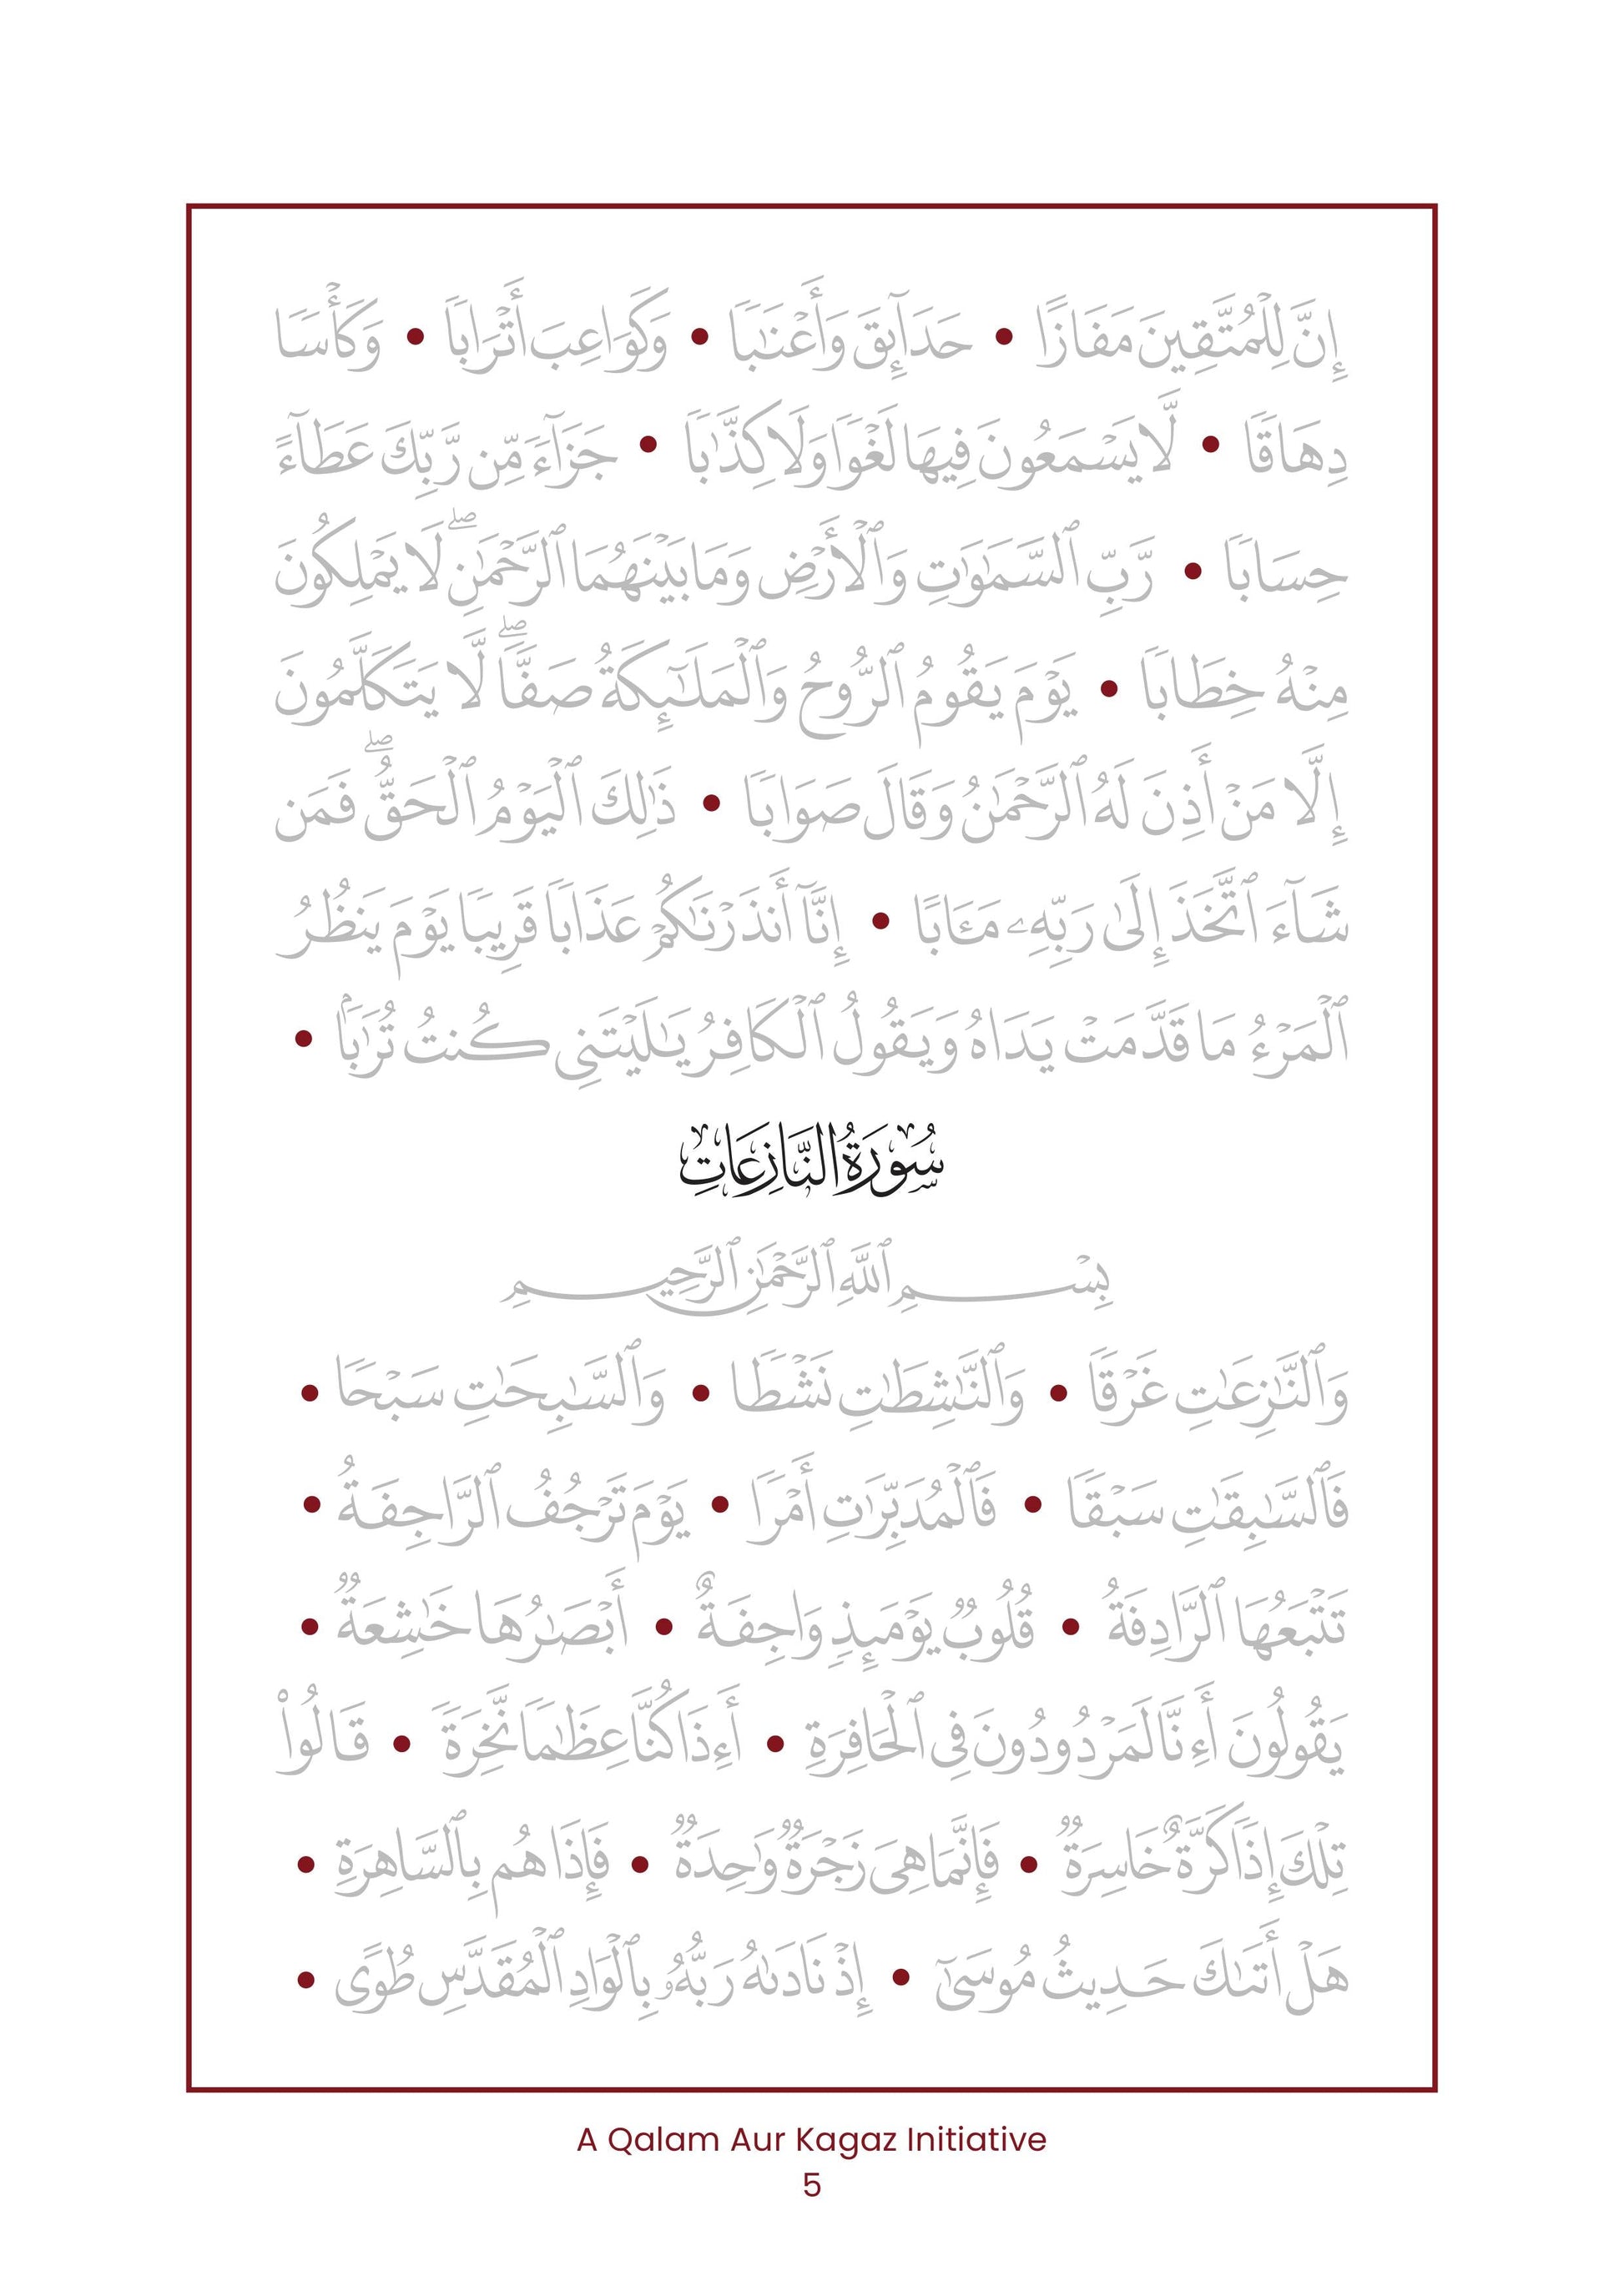 إِنَّ لِلْمُتَّقِينَ مَفَازًا • حَدَآئِقَ وَأَعْنَٰبًا • وَكَوَاعِبَ أَتْرَابًا • وَكَأْسًا
دِهَاقًا • لَّا يَسْمَعُونَ فِيهَا لَغْوًا وَلَا كِذَّٰبًا • جَزَآءً مِّن رَّبِّكَ عَطَآءً
حِسَابًا • رَّبِّ ٱلسَّمَٰوَٰتِ وَٱلْأَرْضِ وَمَا بَيْنَهُمَا ٱلرَّحْمَٰنِۖ لَا يَمْلِكُونَ
مِنْهُ خِطَابًا • يَوْمَ يَقُومُ ٱلرُّوحُ وَٱلْمَلَٰٓئِكَةُ صَفًّاۖ لَّا يَتَكَلَّمُونَ
إِلَّا مَنْ أَذِنَ لَهُ ٱلرَّحْمَٰنُ وَقَالَ صَوَابًا • ذَٰلِكَ ٱلْيَوْمُ ٱلْحَقُّۖ فَمَن
شَآءَ ٱتَّخَذَ إِلَىٰ رَبِّهِۦ مَـَٔابًا • إِنَّآ أَنذَرْنَٰكُمْ عَذَابًا قَرِيبًا يَوْمَ يَنظُرُ
ٱلْمَرْءُ مَا قَدَّمَتْ يَدَاهُ وَيَقُولُ ٱلْكَافِرُ يَٰلَيْتَنِى كُنتُ تُرَٰبًۢا •
سُورَةُ النَّازِعَاتِ
بِسْمِ ٱللَّهِ ٱلرَّحْمَٰنِ ٱلرَّحِيمِ
وَٱلنَّٰزِعَٰتِ غَرْقًا • وَٱلنَّٰشِطَٰتِ نَشْطًا • وَٱلسَّٰبِحَٰتِ سَبْحًا •
فَٱلسَّٰبِقَٰتِ سَبْقًا • فَٱلْمُدَبِّرَٰتِ أَمْرًا • يَوْمَ تَرْجُفُ ٱلرَّاجِفَةُ •
تَتْبَعُهَا ٱلرَّادِفَةُ • قُلُوبٌ يَوْمَئِذٍ وَاجِفَةٌ • أَبْصَٰرُهَا خَٰشِعَةٌ •
يَقُولُونَ أَءِنَّا لَمَرْدُودُونَ فِى ٱلْحَافِرَةِ • أَءِذَا كُنَّا عِظَٰمًا نَّخِرَةً • قَالُوا۟
تِلْكَ إِذًا كَرَّةٌ خَاسِرَةٌ • فَإِنَّمَا هِىَ زَجْرَةٌ وَٰحِدَةٌ • فَإِذَا هُم بِٱلسَّاهِرَةِ •
هَلْ أَتَىٰكَ حَدِيثُ مُوسَىٰٓ • إِذْ نَادَىٰهُ رَبُّهُۥ بِٱلْوَادِ ٱلْمُقَدَّسِ طُوًى •
A Qalam Aur Kagaz Initiative
5